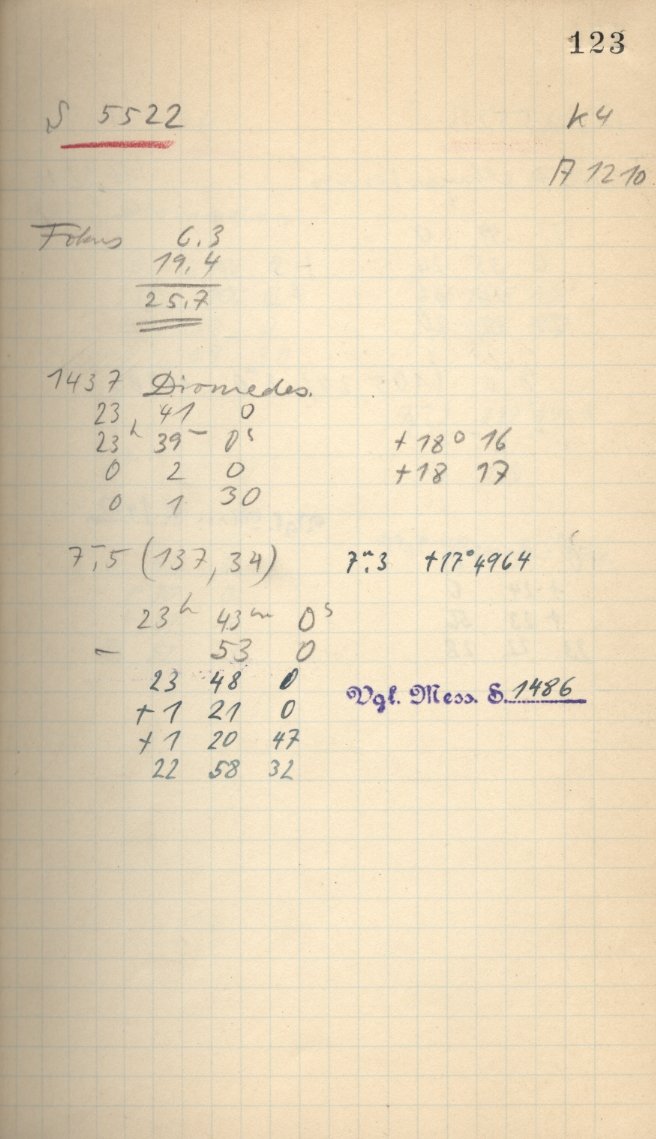 123
S 5522 K4
A 1210
Fokus 6.3
19.4
25.7
1437 Diomedes.
23 41 0
23ʰ 39ᵐ 0ˢ +18° 16
0 2 0 +18 17
0 1 30
7ᵐ,5 (137, 34) 7ᵐ.3 +17°4964
23ʰ 43ᵐ 0ˢ
– 53 0
23 48 0
Vgl. Mess. S. 1486
+1 21 0
+1 20 47
22 58 32